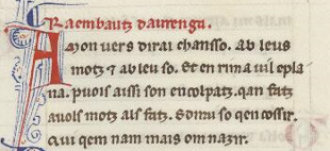 Raembautz daurenga.
A mon vers dirai chansso. ab leus
motz ⁊ ab leu so. Et en rima uil epla
na. puois aissi son encolpatz. qan fatz
auols motz als fatz. E dirai so qen cossir.
cui qem nam mais o m nazir.